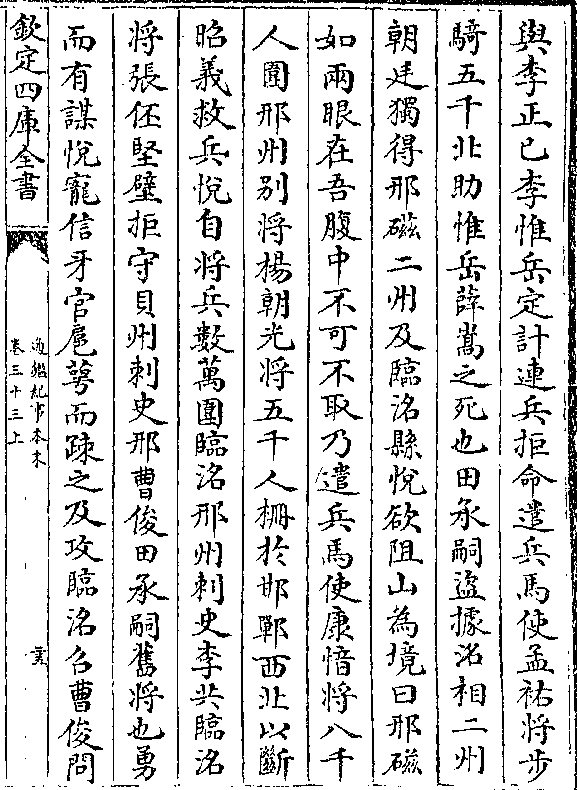 與李正己李惟岳定計連兵拒命遣兵馬使孟祐將步
騎五千北助惟岳薛嵩之死也田承嗣盜據洺相二州
朝廷獨得邢磁二州及臨洺縣悅欲阻山為境曰邢磁
如兩眼在吾腹中不可不取乃遣兵馬使康愔將八千
人圍邢州别將楊朝光將五千人柵於邯鄲西北以斷
昭義救兵悅自將兵數萬圍臨洺邢州刺史李共臨洺
將張伾堅壁拒守貝州刺史邢曹俊田承嗣舊將也勇
而有謀悅寵信牙官扈萼而疎之及攻臨洺召曹俊問
欽定四庫全書
通鑑紀事本末
卷三十三上